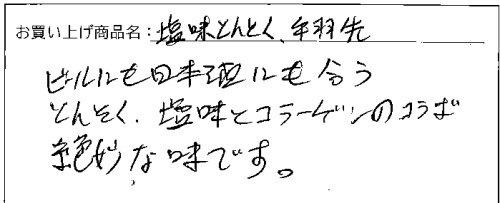 お買い上げ商品名：塩味とんとく、手羽先
ビールにも日本酒にも合う
とんそく、塩味とコラーゲンのコラボ
絶妙な味です。